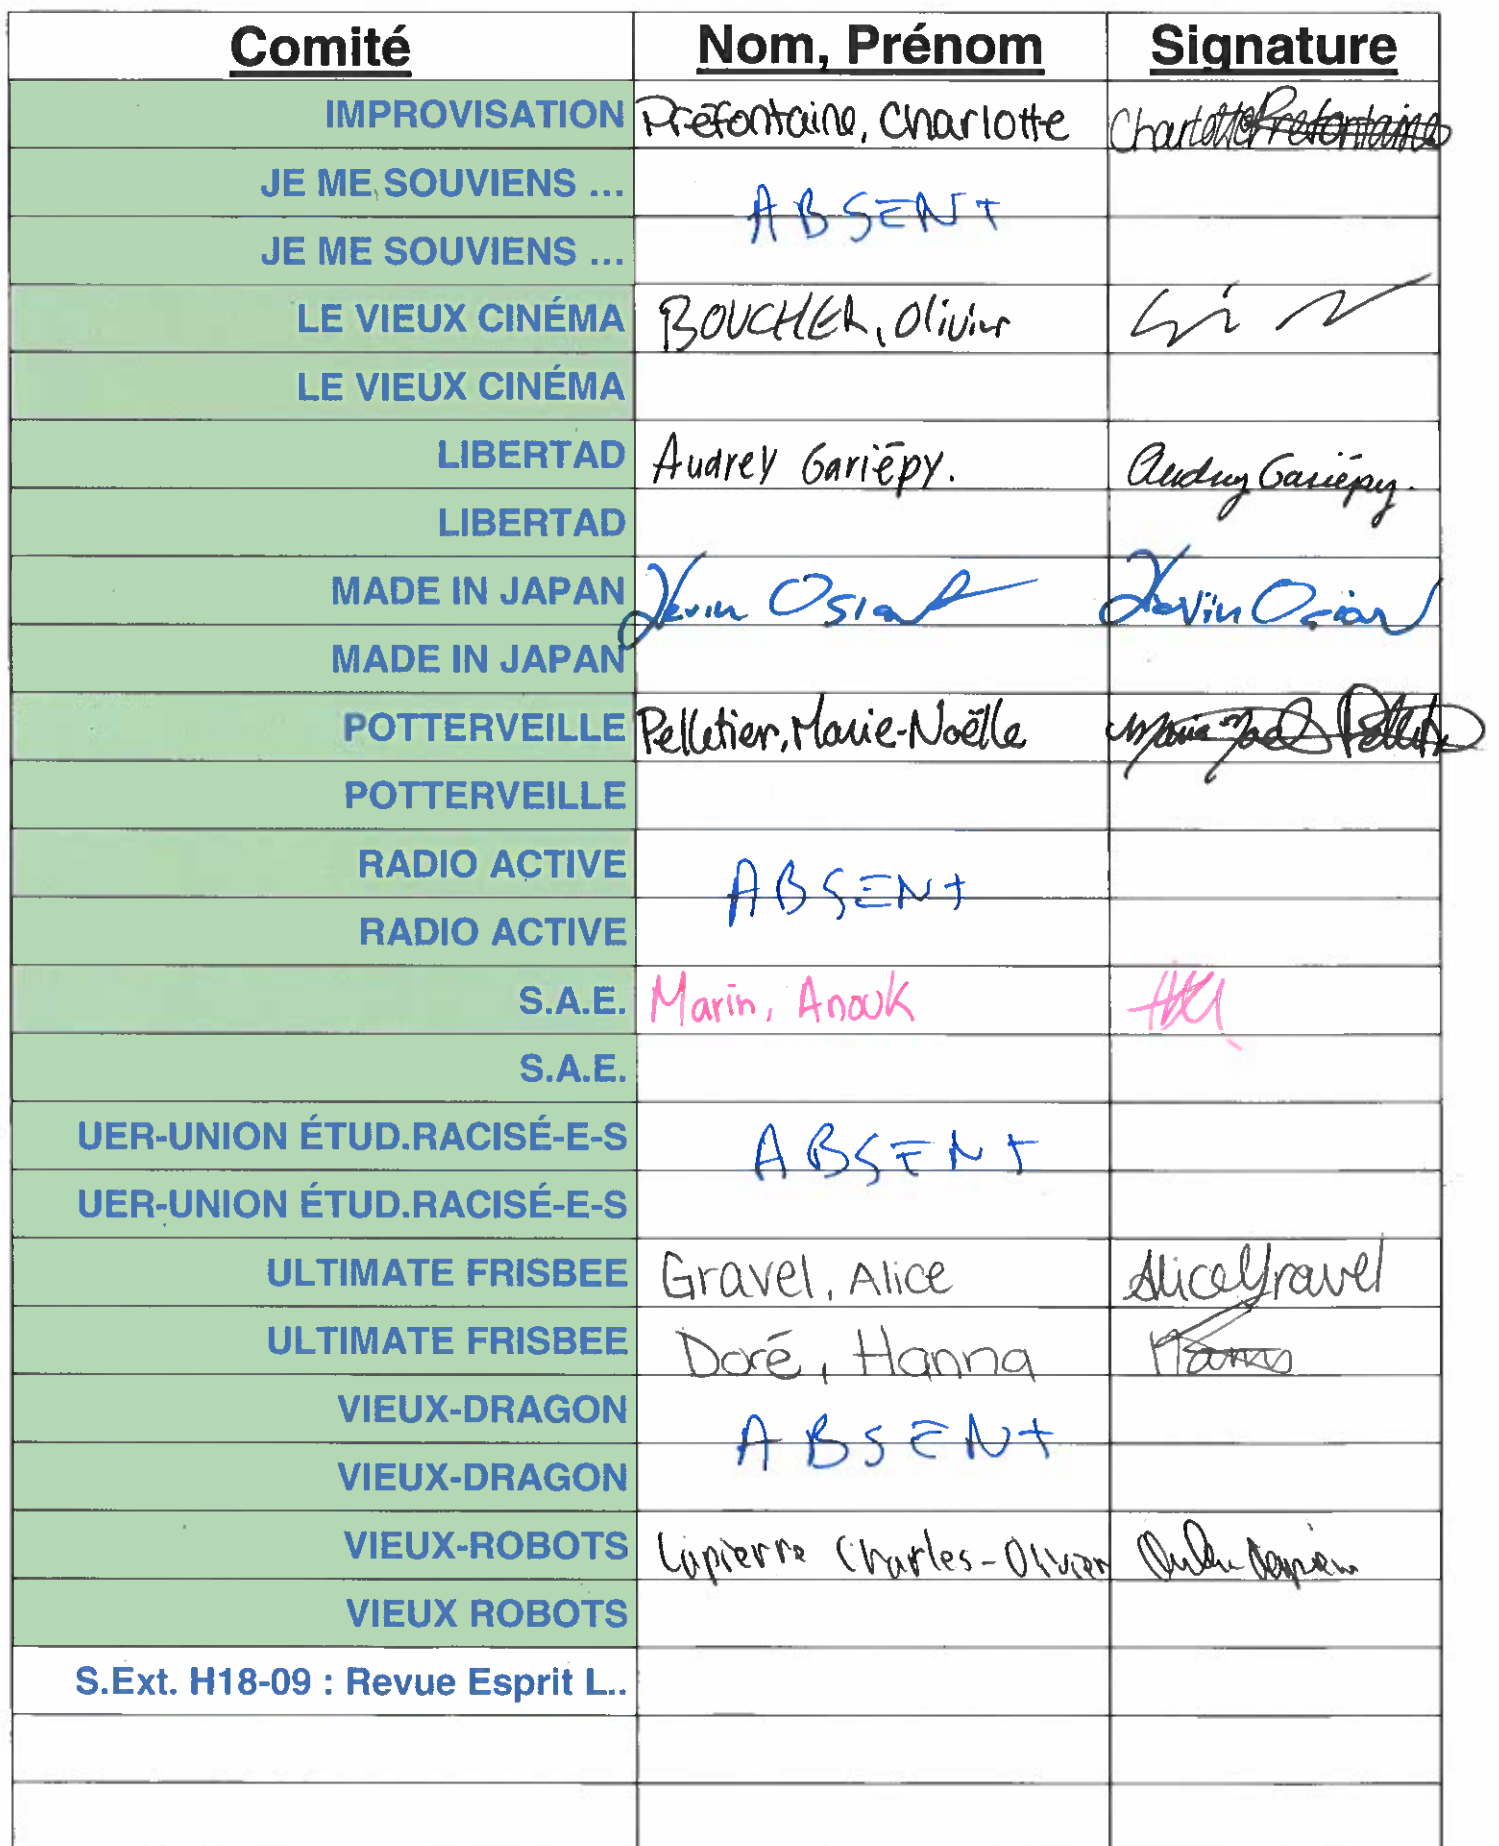 Comité Nom, Prénom Signature
IMPROVISATION Préfontaine, Charlotte Charlotte Prefontaine
JE ME SOUVIENS ...
ABSENT
JE ME SOUVIENS ...
LE VIEUX CINÉMA BOUCHER, Olivier
LE VIEUX CINÉMA
LIBERTAD Audrey Gariēpy. Audrey Gariépy.
LIBERTAD
MADE IN JAPAN Kevin Kevin
MADE IN JAPAN
POTTERVEILLE Pelletier, Marie-Noëlle
POTTERVEILLE
RADIO ACTIVE
ABSENT
RADIO ACTIVE
S.A.E. Marin, Anouk
S.A.E.
UER-UNION ÉTUD.RACISÉ-E-S
ABSENT
UER-UNION ÉTUD.RACISÉ-E-S
ULTIMATE FRISBEE Gravel, Alice Alice Gravel
ULTIMATE FRISBEE Doré, Hanna
VIEUX-DRAGON
ABSENT
VIEUX-DRAGON
VIEUX-ROBOTS Lapierre Charles-Olivier
VIEUX ROBOTS
S.Ext. H18-09 : Revue Esprit L..